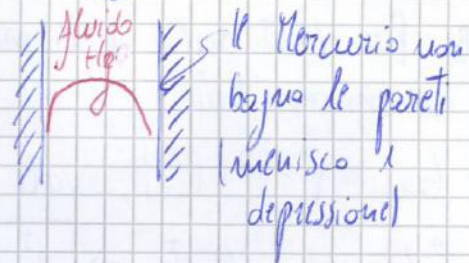 fluido
Hg
Il Mercurio non
bagna le pareti
(menisco e
depressione)